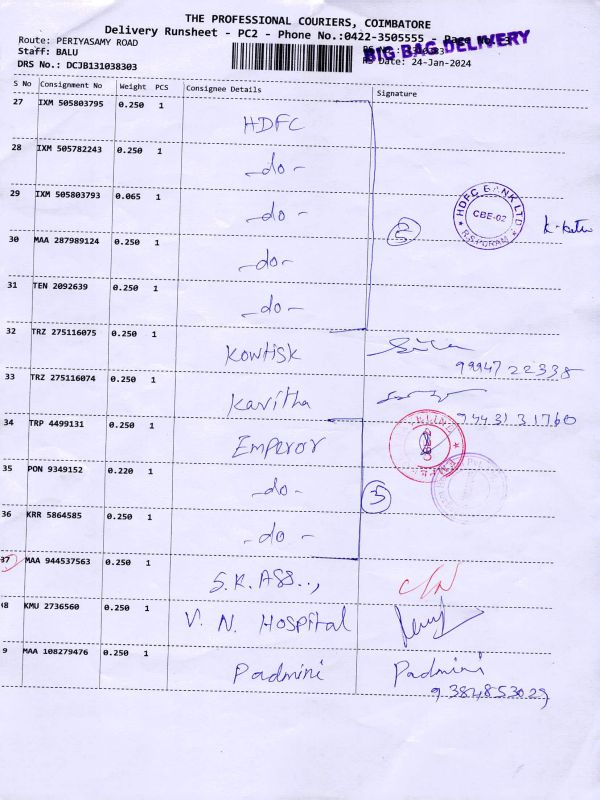 THE PROFESSIONAL COURIERS, COIMBATORE
Delivery Runsheet - PC2 - Phone No.:0422-3505555 - Page No.:3
Route: PERIYASAMY ROAD
BIG BAG DELIVERY
Staff: BALU
DRS No.: DCJB131038303
Date: 24-Jan-2024
S No Consignment No Weight PCS Consignee Details Signature
27 IXM 505803795 0.250 1 HDFC
28 IXM 505782243 0.250 1 -do-
29 IXM 505803793 0.065 1 -do-
HDFC BANK LTD
CBE-02
R.S PURAM
2
30 MAA 287989124 0.250 1 -do-
31 TEN 2092639 0.250 1 -do-
32 TRZ 275116075 0.250 1 Kowtisk
99947 22338
33 TRZ 275116074 0.250 1 Kavitha
94431 31760
34 TRP 4499131 0.250 1 Emperor
35 PON 9349152 0.220 1 -do-
3
36 KRR 5864585 0.250 1 -do-
37 MAA 944537563 0.250 1 S.K. ASS.., C/N
38 KMU 2736560 0.250 1 V. N. Hospital
9 MAA 108279476 0.250 1 Padmini Padmini
9384853029